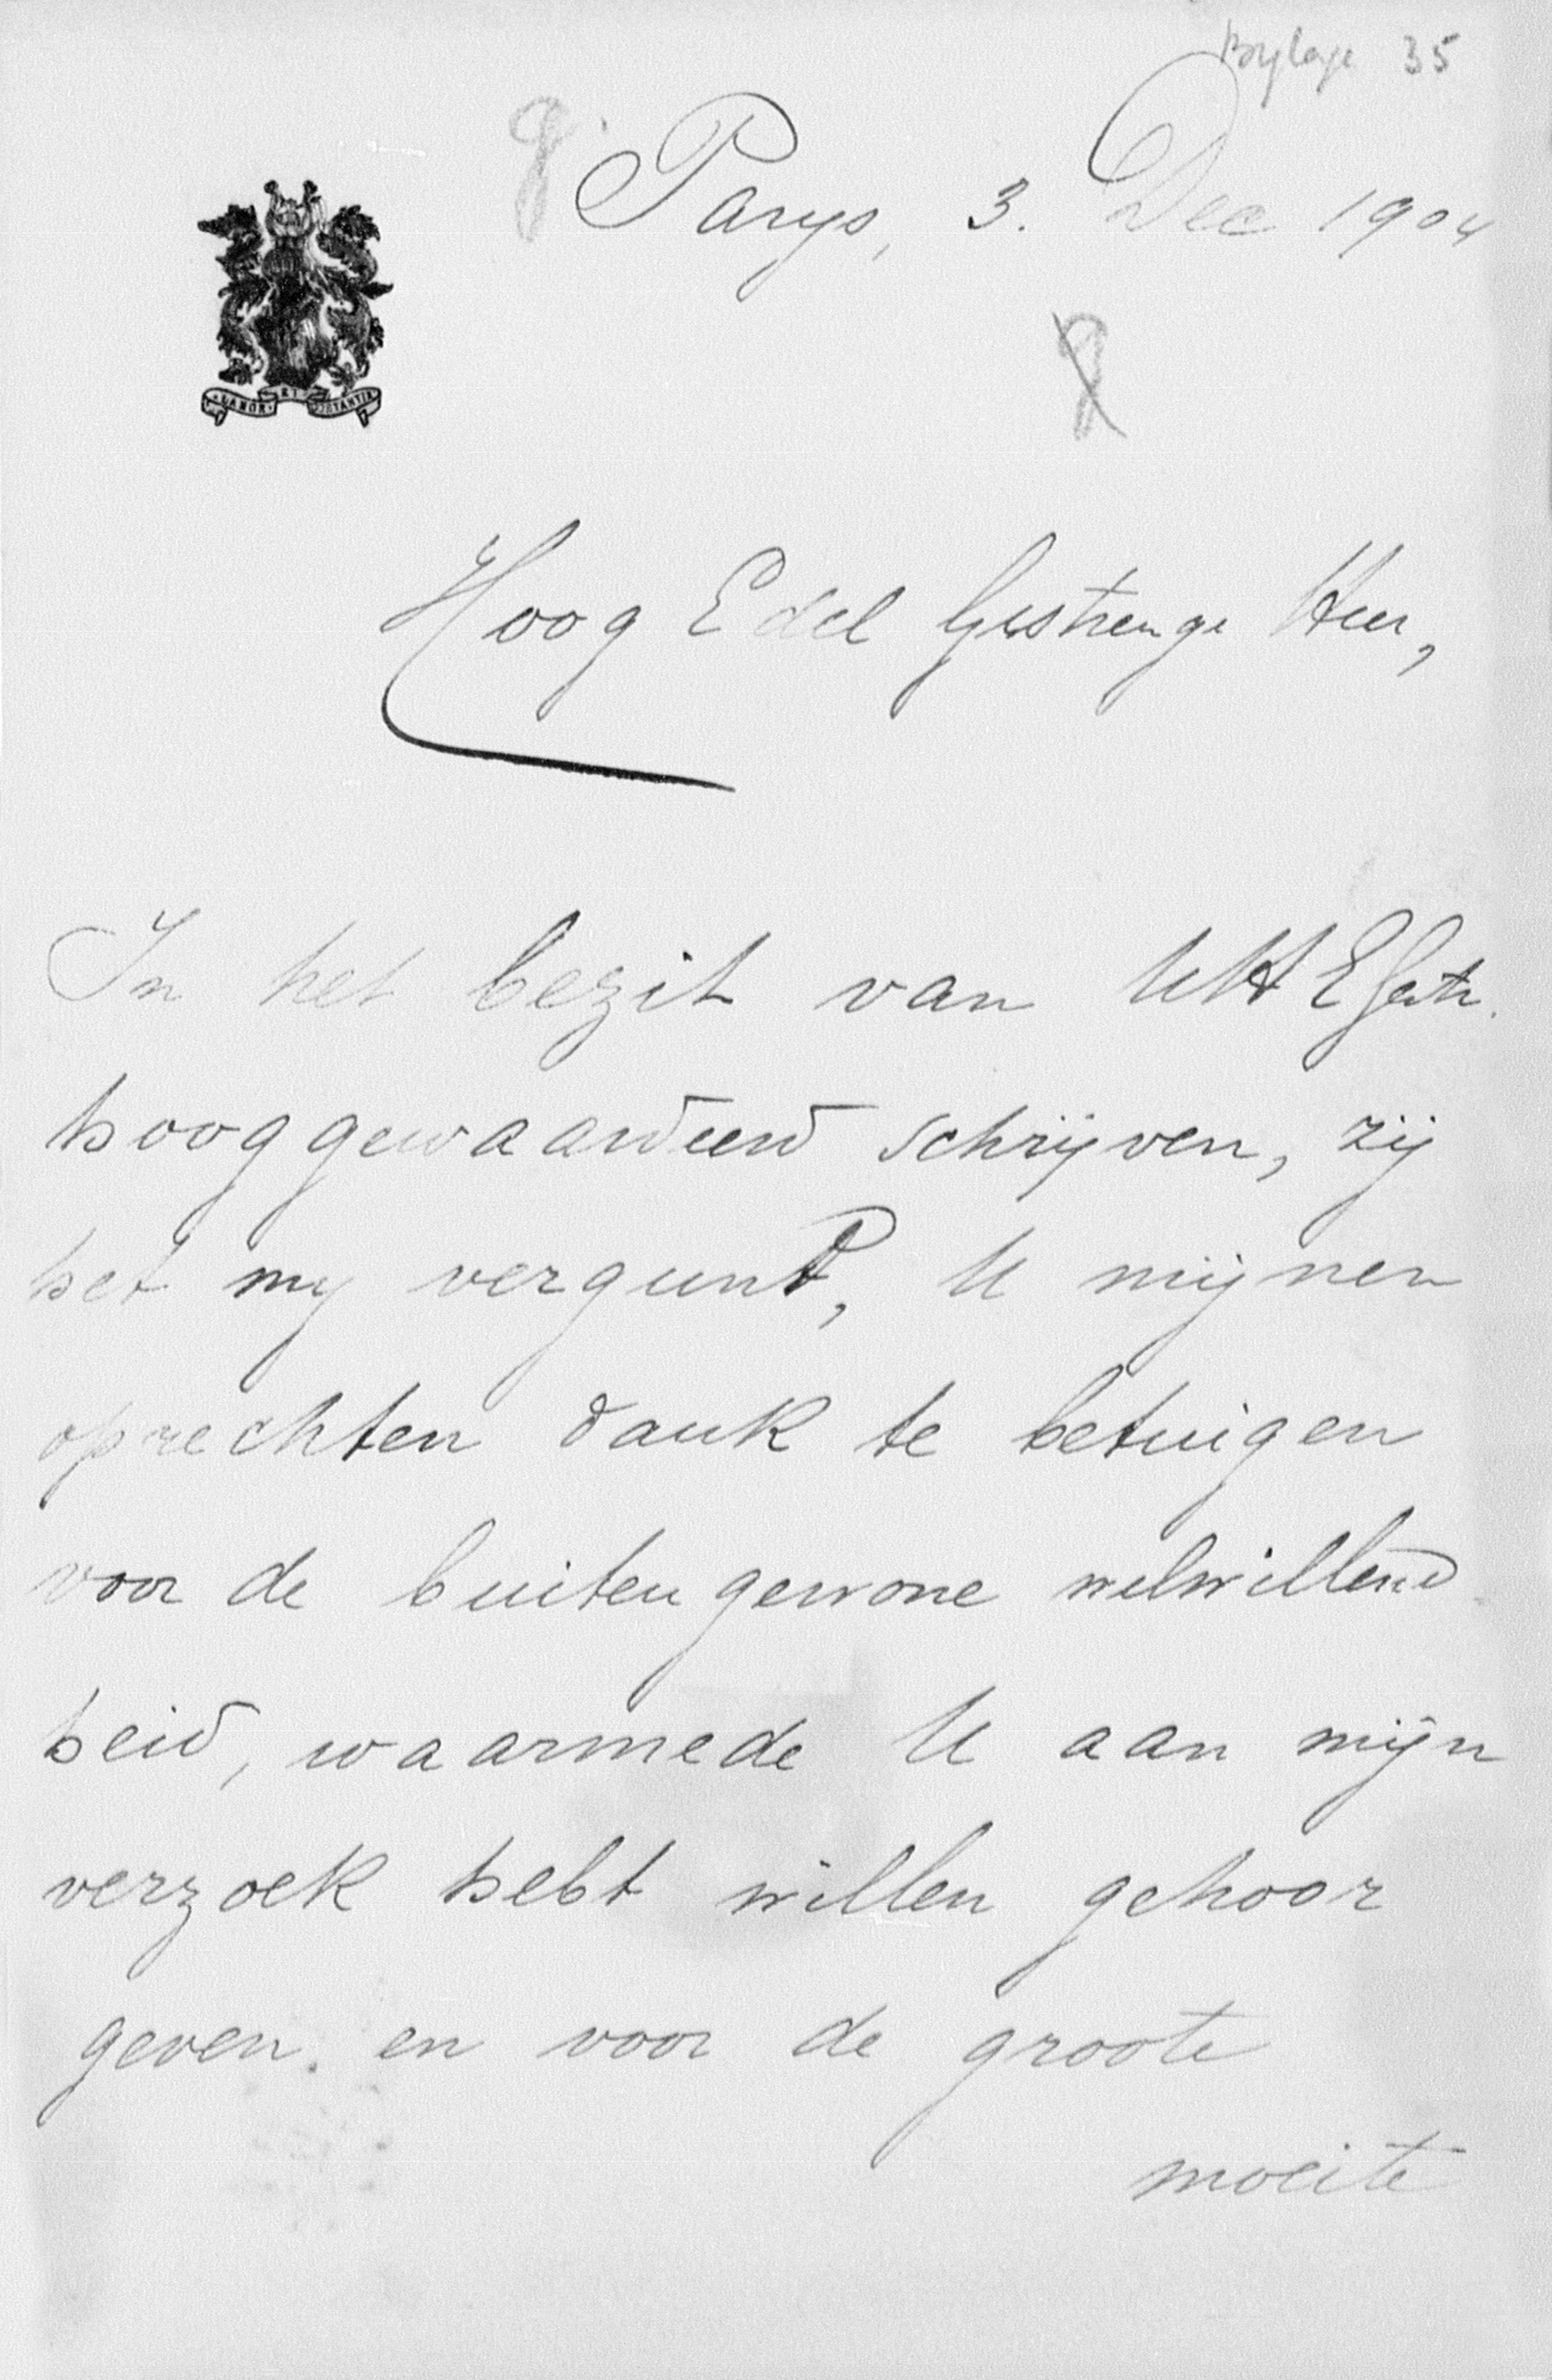 Bylage 35
Parys, 3. Dec 1904
LABOR ET CONSTANTIA
Hoog Edel Gestrenge Heer,
In het bezit van UHEGestr.
hooggewaardeerd schrijven, zij
het my vergund, U mijnen
oprechten dank te betuigen
voor de buitengewone welwillend
heid, waarmede U aan mijn
verzoek hebt willen gehoor
geven. en voor de groote
moeite